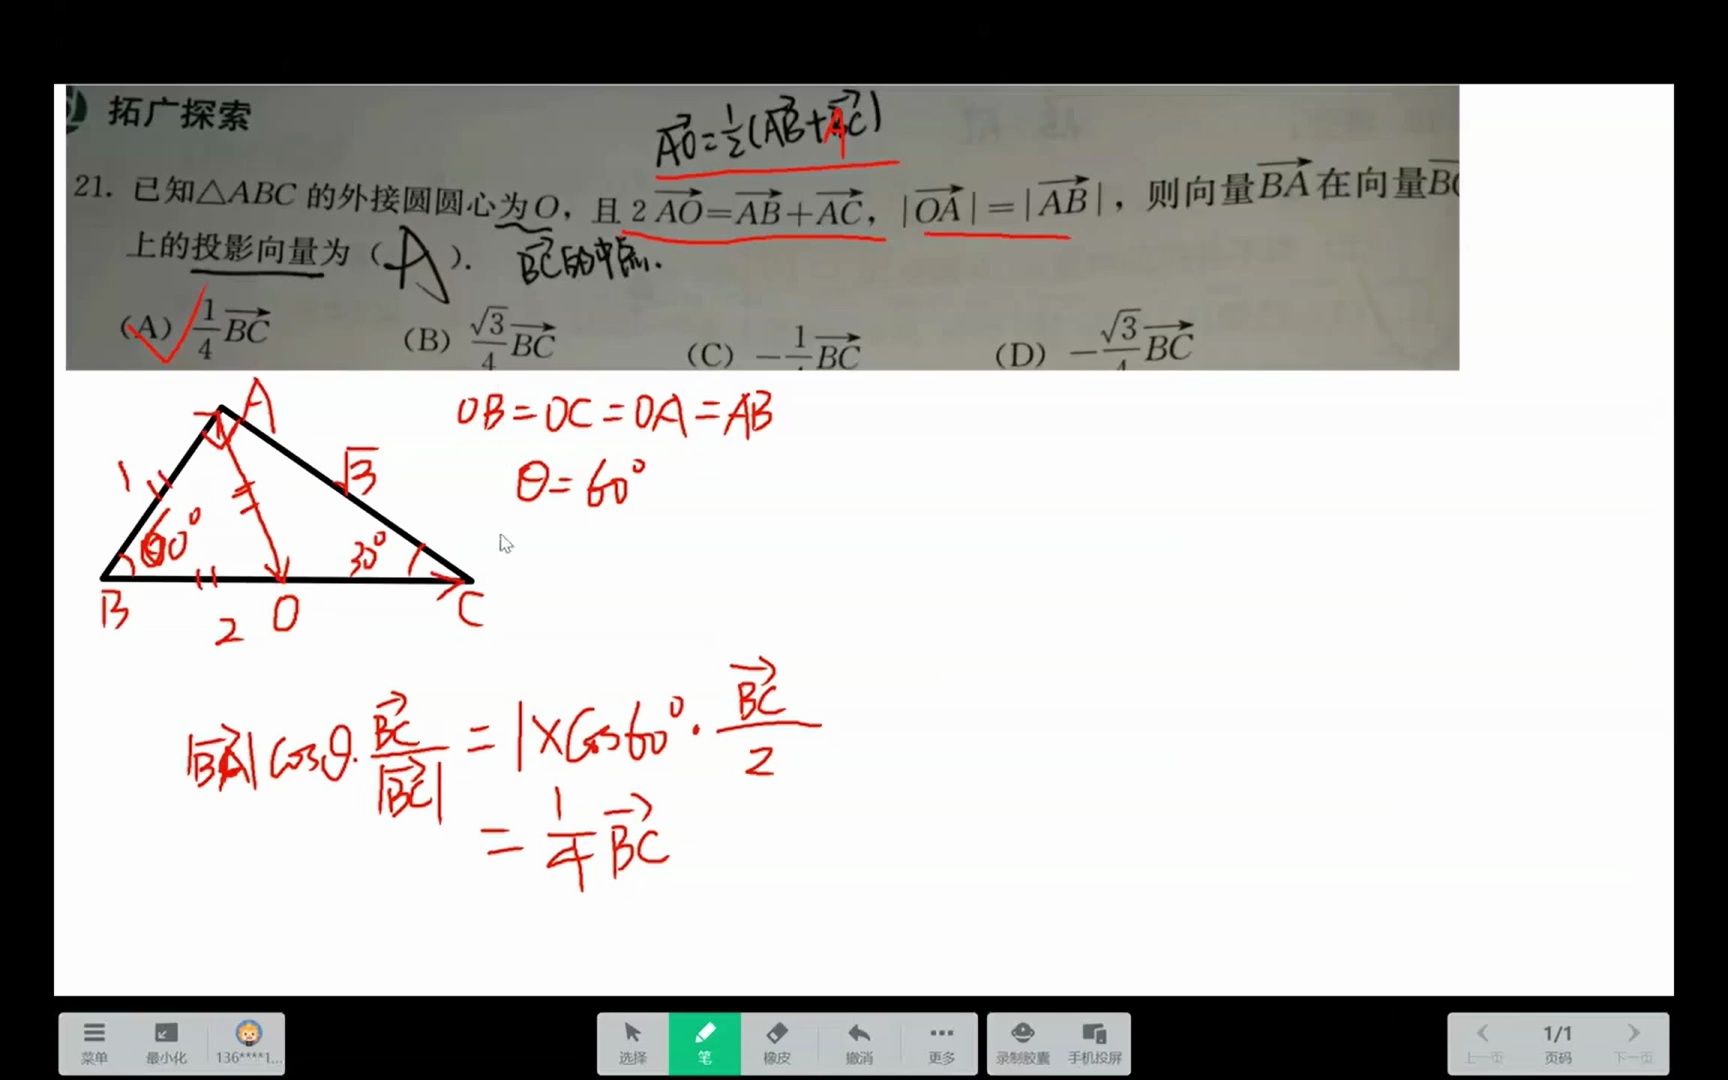 拓广探索
AO=1/2(AB+AC)
21. 已知△ABC 的外接圆圆心为O，且 2AO=AB+AC，|OA|=|AB|，则向量BA在向量BC
上的投影向量为（A）. BC的中点.
(A) 1/4 BC (B) √3/4 BC (C) -1/4 BC (D) -√3/4 BC
A
1
√3
60°
30°
B
2
O
C
OB=OC=OA=AB
θ=60°
|BA|cosθ·BC/|BC| = 1×cos60°·BC/2
= 1/4 BC
菜单
最小化
136****1...
选择
笔
橡皮
撤消
更多
录制胶囊
手机投屏
上一页
1/1
页码
下一页